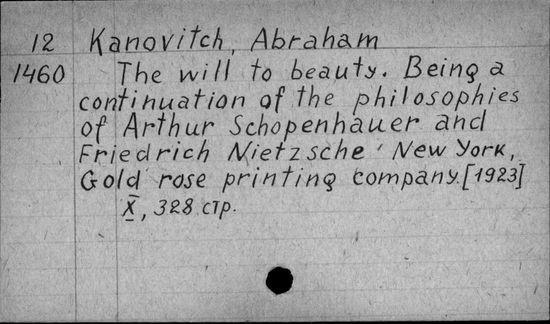 12 Kanovitch, Abraham
1460 The will to beauty. Being a
continuation of the philosophies
of Arthur Schopenhauer and
Friedrich Nietzsche. New York,
Gold rose printing company. [1923]
X, 328 стр.